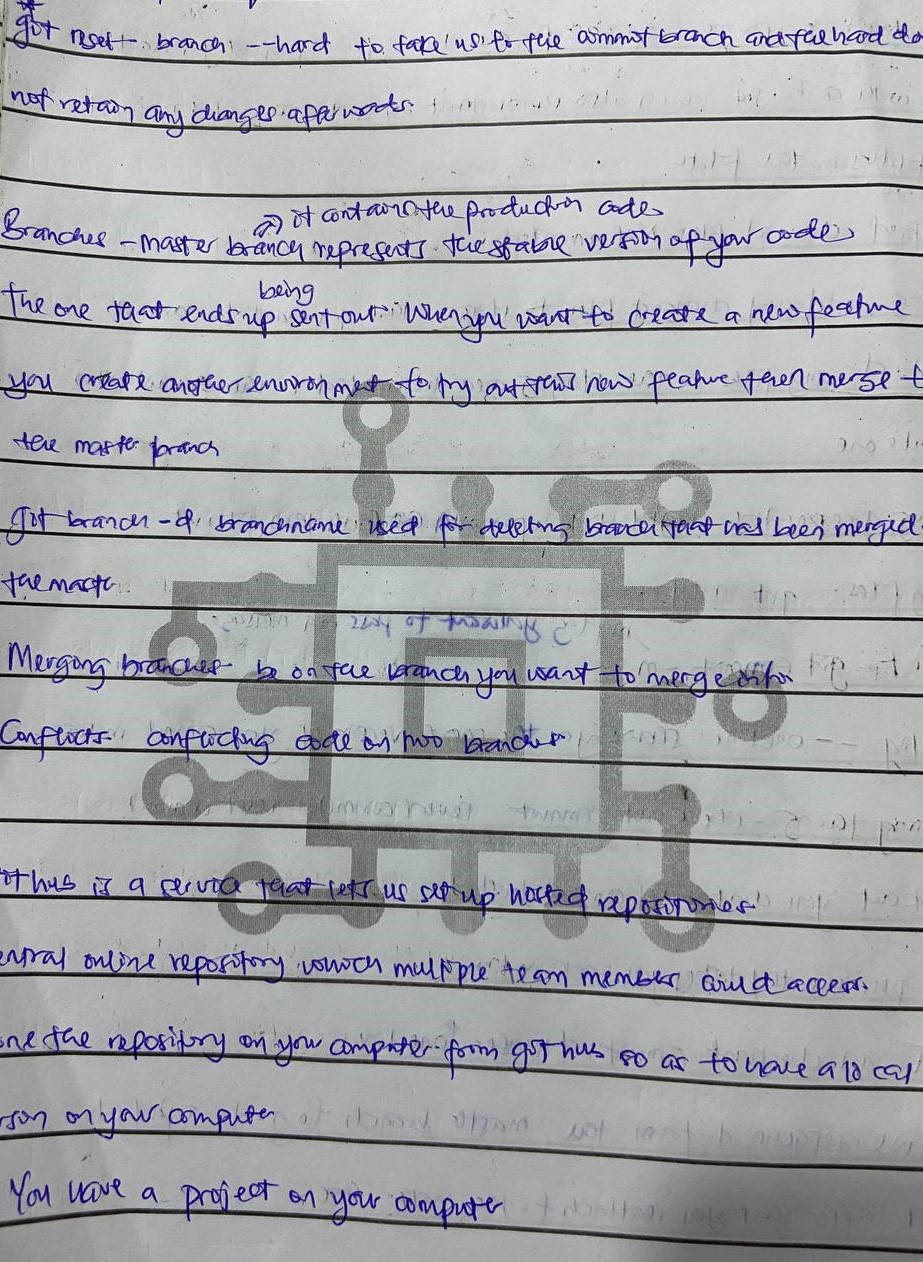 git reset branch --hard to take us to the commit branch and the hard do
not retain any changes afterwards.
it contains the production code
Branches - master branch represents the stable version of your code
being
The one that ends up sent out. When you want to create a new feature
you create another environment to try out this new feature then merge t
the master branch
git branch -d branchname used for deleting branch that has been merged
the master
Merging branches be on the branch you want to merge into
Conflicts conflicting code on two branches
ithub is a service that lets us set up hosted repositories
entral online repository which multiple team members could access.
one the repository on your computer from github so as to have a local
rsion on your computer
You have a project on your computer